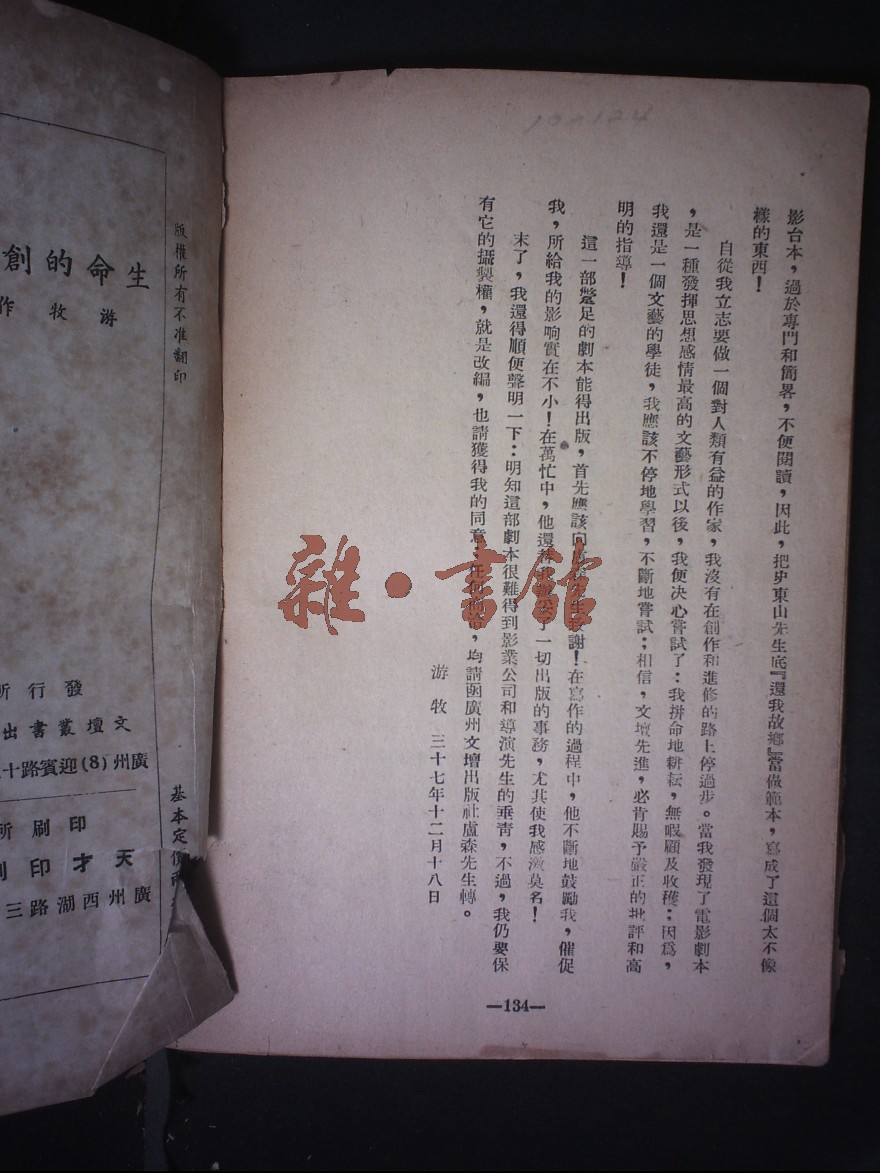 10×124
影台本，過於專門和簡畧，不便閱讀，因此，把史東山先生底『還我故鄉』當做範本，寫成了這個太不像
樣的東西！
自從我立志要做一個對人類有益的作家，我沒有在創作和進修的路上停過步。當我發現了電影劇本
，是一種發揮思想感情最高的文藝形式以後，我便决心嘗試了：我拼命地耕耘，無暇顧及收穫；因爲，
我還是一個文藝的學徒，我應該不停地學習，不斷地嘗試；相信，文壇先進，必肯賜予嚴正的批評和高
明的指導！
這一部蹩足的劇本能得出版，首先應該向 謝！在寫作的過程中，他不斷地鼓勵我，催促
我，所給我的影响實在不小！在萬忙中，他還 了一切出版的事務，尤其使我感激莫名！
末了，我還得順便聲明一下：明知這部劇本很難得到影業公司和導演先生的垂青，不過，我仍要保
有它的攝製權，就是改編，也請獲得我的同意；任何 ，均請函廣州文壇出版社盧森先生轉。
游牧 三十七年十二月十八日
—134—
雜·書館
版權所有不准翻印
基本定價
生命的創
游牧作
發行所
文壇叢書出
廣州(8)迎賓路十
印刷所
天才印刷
廣州西湖路三